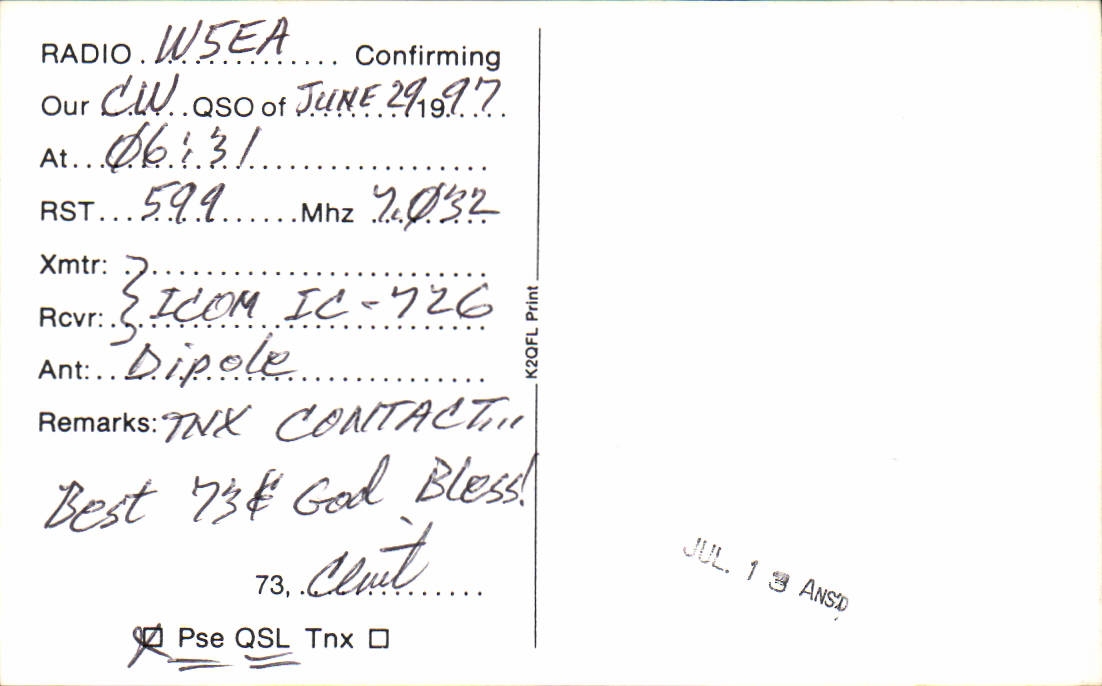 RADIO W5EA Confirming
Our CW QSO of JUNE 29 1997
At 06:31
RST 599 Mhz 7.032
Xmtr:
Rcvr: ICOM IC-726
Ant: Dipole
Remarks: TNX CONTACT...
Best 73 & God Bless!
73, Clint
Pse QSL Tnx
K2QFL Print
JUL. 13 ANS'D